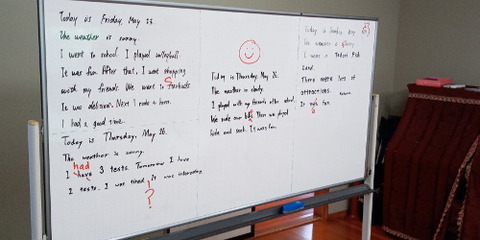 Today is Friday, May 23.
The weather is sunny.
I went to school. I played volleyball.
It was fun. After that, I went shopping
with my friends. We went to
It was delicious. Next I rode a
I had a good time.
Today is Thursday, May 26.
The weather is sunny.
had
I have 3 tests. Tomorrow I have
2 tests. I was tired. It was interesting
?
Today is Thursday, May 26.
The weather is cloudy.
I played with my friends after school.
We rode our We played
hide and seek. It was fun.
Today is
The weather is
I went to
Land.
There were lots of
attractions.
It was fun.